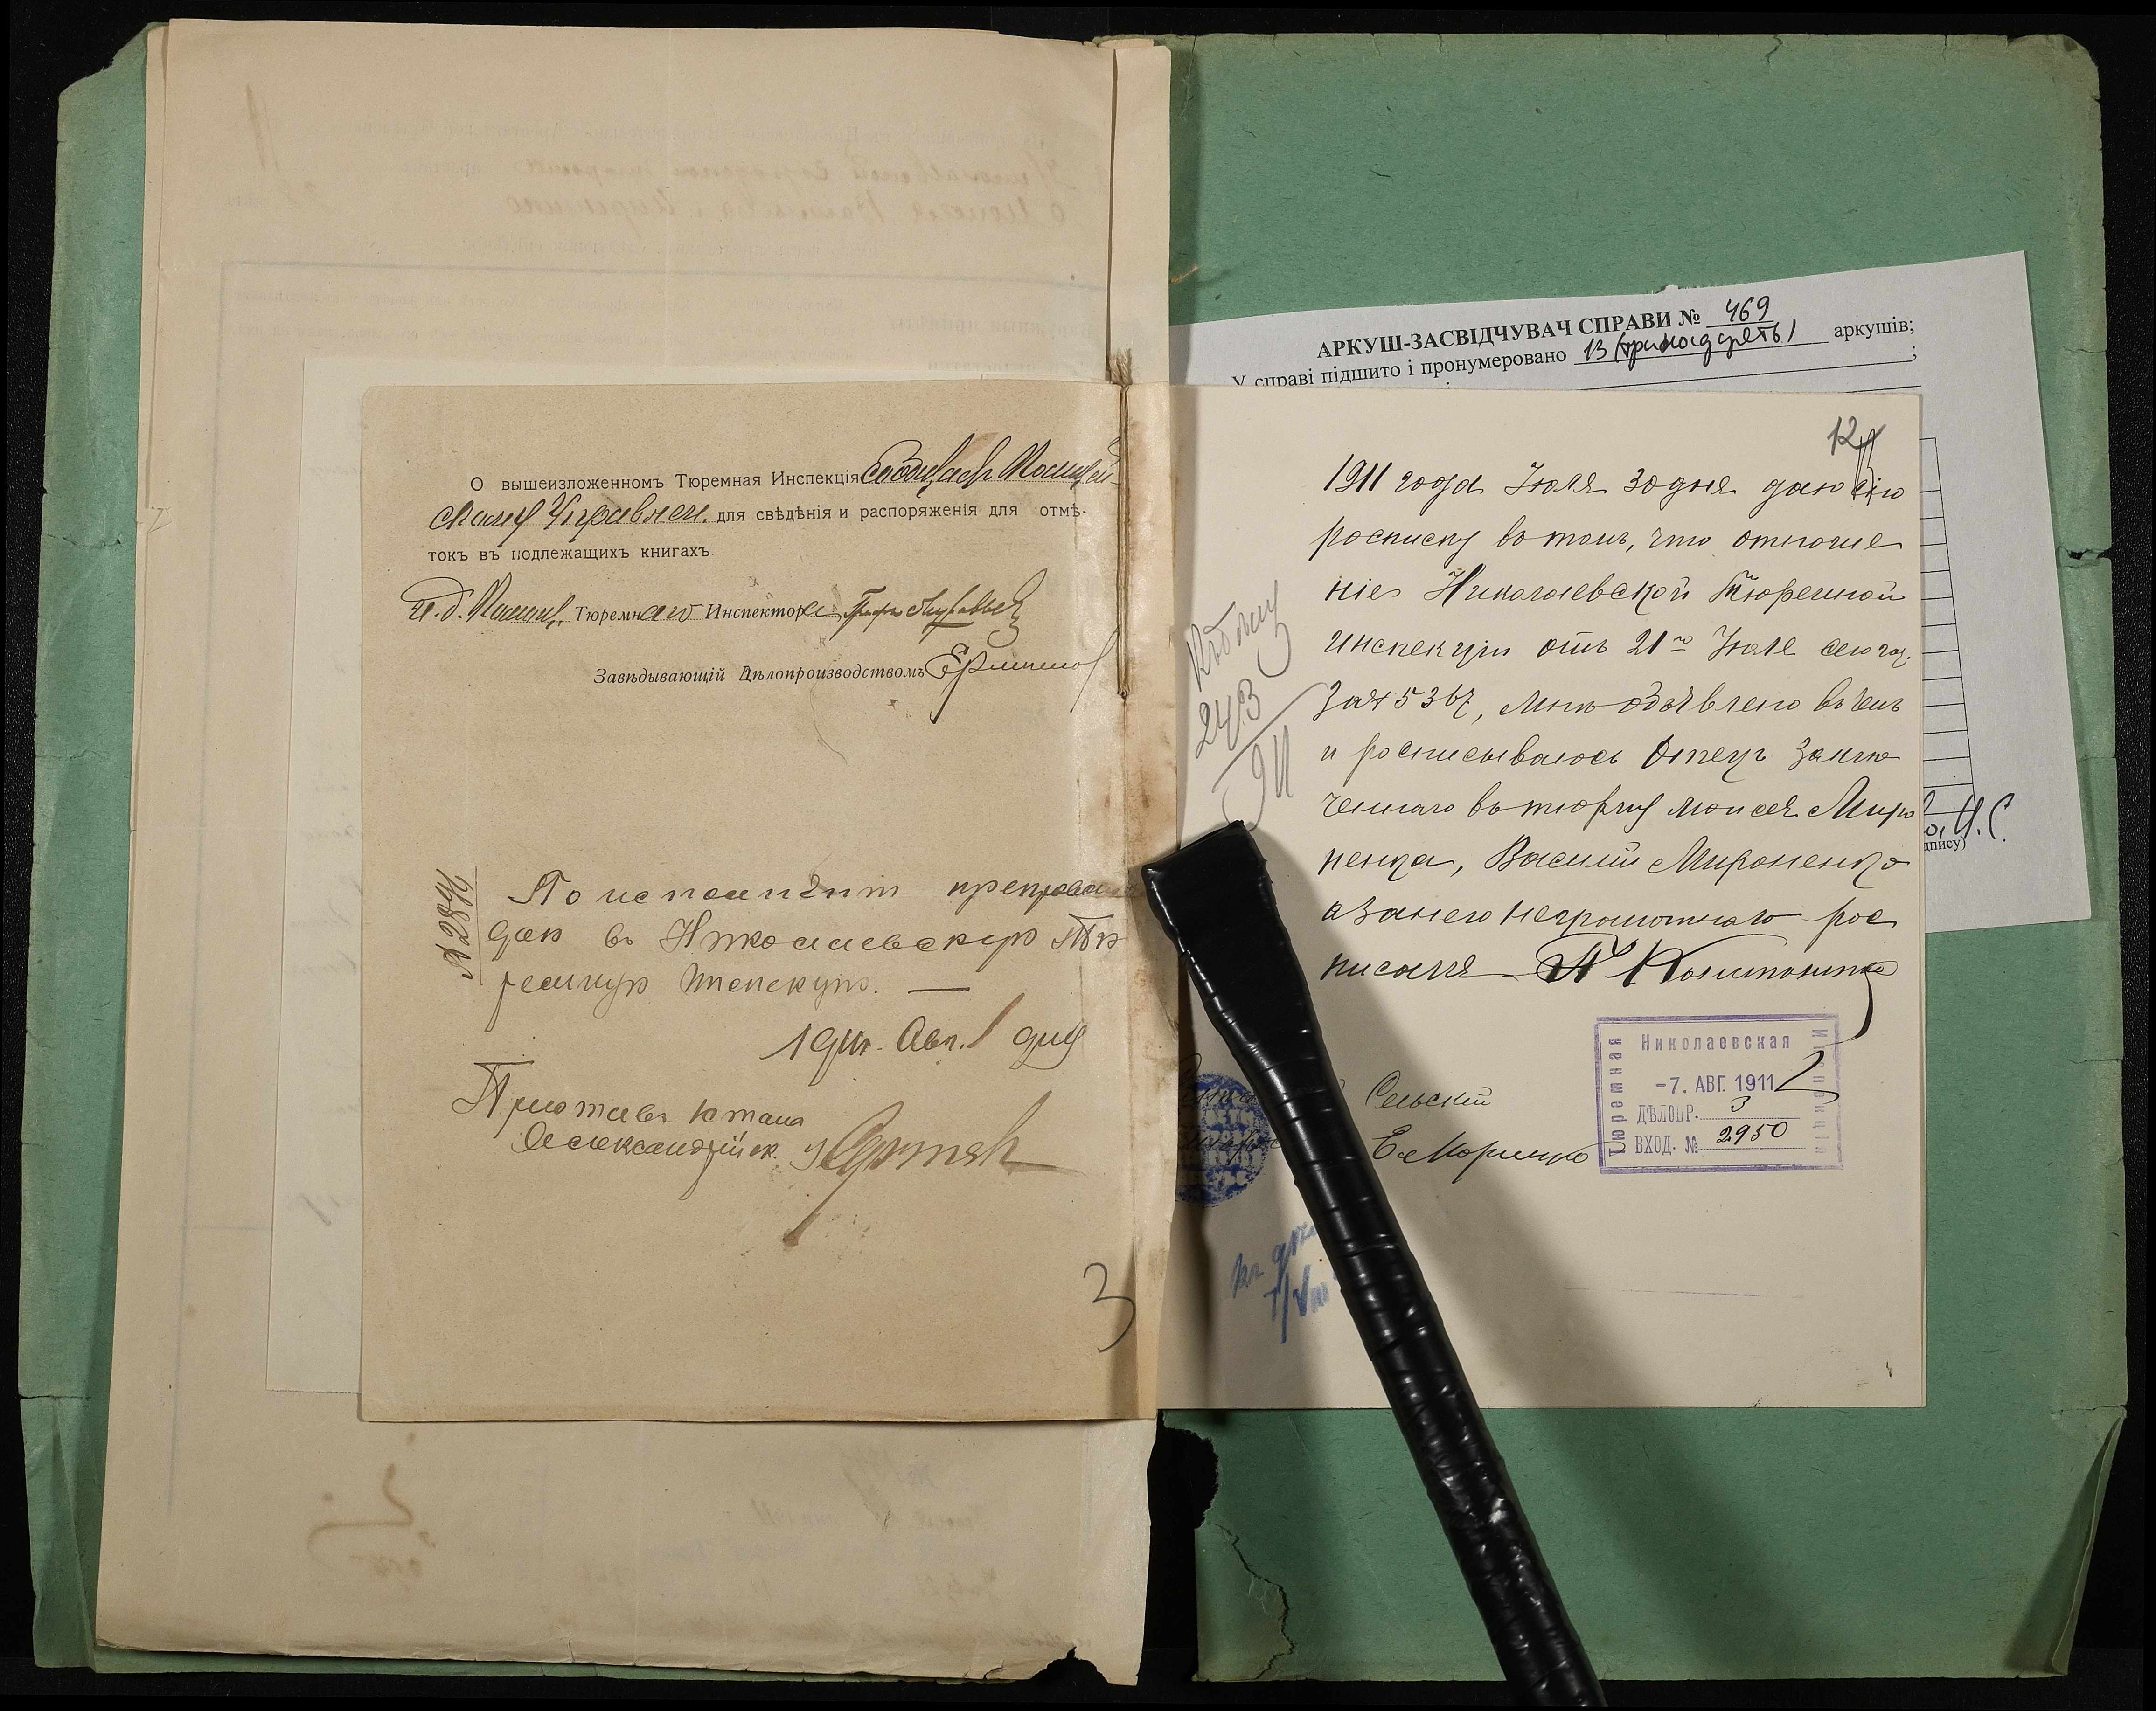 О вышеизложенномъ Тюремная Инспекція сообщаетъ Полицей-
скому Управлен. для свѣдѣнія и распоряженія для отмѣ-
токъ въ подлежащихъ книгахъ.
И. д. Помощ. Тюремнаго Инспектора
Завѣдывающій Дѣлопроизводствомъ
№ 2844
По исполненіи препрово
дак въ Николаевскую Тю
ремную Инспекцію. —
1911. Авг. 1 дня
Приставъ 1 стана
Александрійск. у
3
АРКУШ-ЗАСВІДЧУВАЧ СПРАВИ № 469
У справі підшито і пронумеровано 13 (тринадцять) аркушів;
12
1911 года Іюля 30 дня даю сію
росписку въ томъ, что отноше
ніе Николаевской Тюремной
инспекціи отъ 21го Іюля сего год.
за № 5367, мнѣ объявлено въ чемъ
и росписываюсь Отецъ заклю
ченнаго въ тюрму Моисея Миро
ненка, Василій Мироненко
а за него неграмотнаго рос
писался
Къ дѣлу
243
911
Сельскій
Николаевская
Тюремная
Инспекція
-7. АВГ. 1911
ДѢЛОПР. 3
ВХОД. № 2950